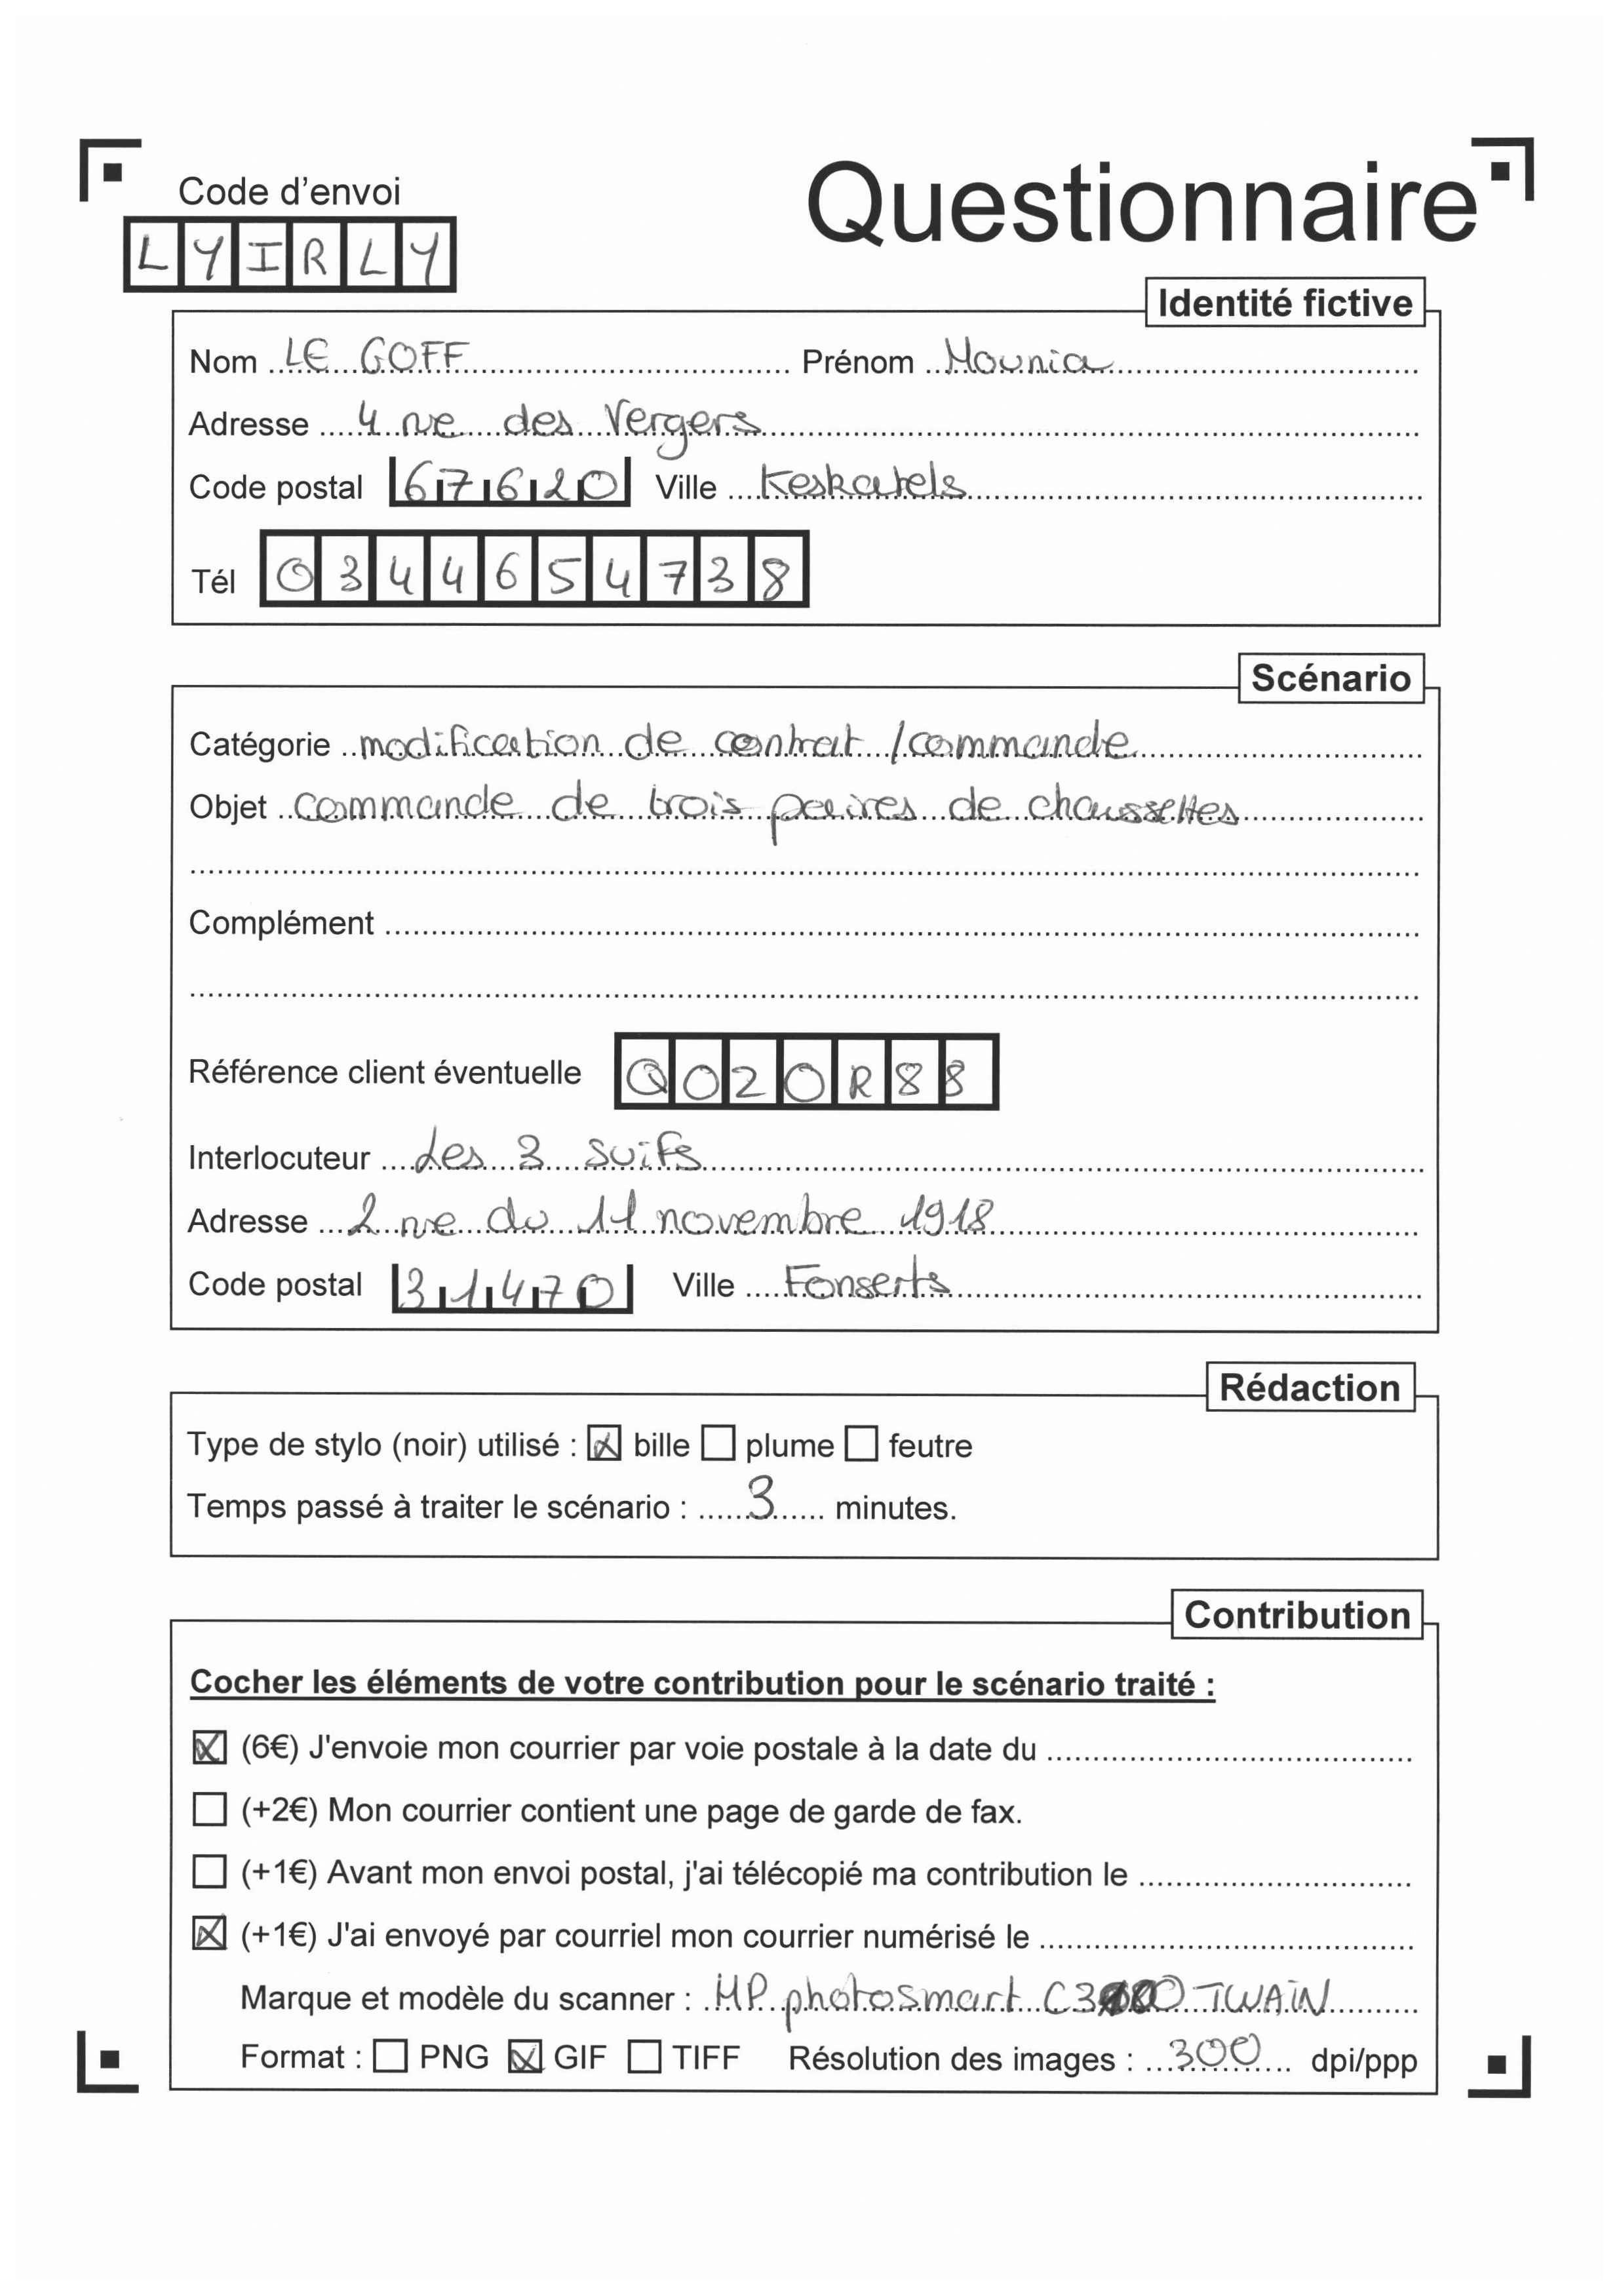 Code d'envoi
Questionnaire
LYIRLY
Identité fictive
Nom LE GOFF Prénom Mounia
Adresse 4 rue des Vergers
Code postal 67620 Ville Keskatels
Tél 0344654738
Scénario
Catégorie modification de contrat / commande
Objet commande de trois paires de chaussettes
Complément
Référence client éventuelle QO2OR88
Interlocuteur Les 3 suifs
Adresse 2 rue du 11 novembre 1918
Code postal 31470 Ville Fonserts
Rédaction
Type de stylo (noir) utilisé : ☒ bille ☐ plume ☐ feutre
Temps passé à traiter le scénario : 3 minutes.
Contribution
Cocher les éléments de votre contribution pour le scénario traité :
☒ (6€) J'envoie mon courrier par voie postale à la date du
☐ (+2€) Mon courrier contient une page de garde de fax.
☐ (+1€) Avant mon envoi postal, j'ai télécopié ma contribution le
☒ (+1€) J'ai envoyé par courriel mon courrier numérisé le
Marque et modèle du scanner : HP photosmart TWAIN
Format : ☐ PNG ☒ GIF ☐ TIFF Résolution des images : 300 dpi/ppp